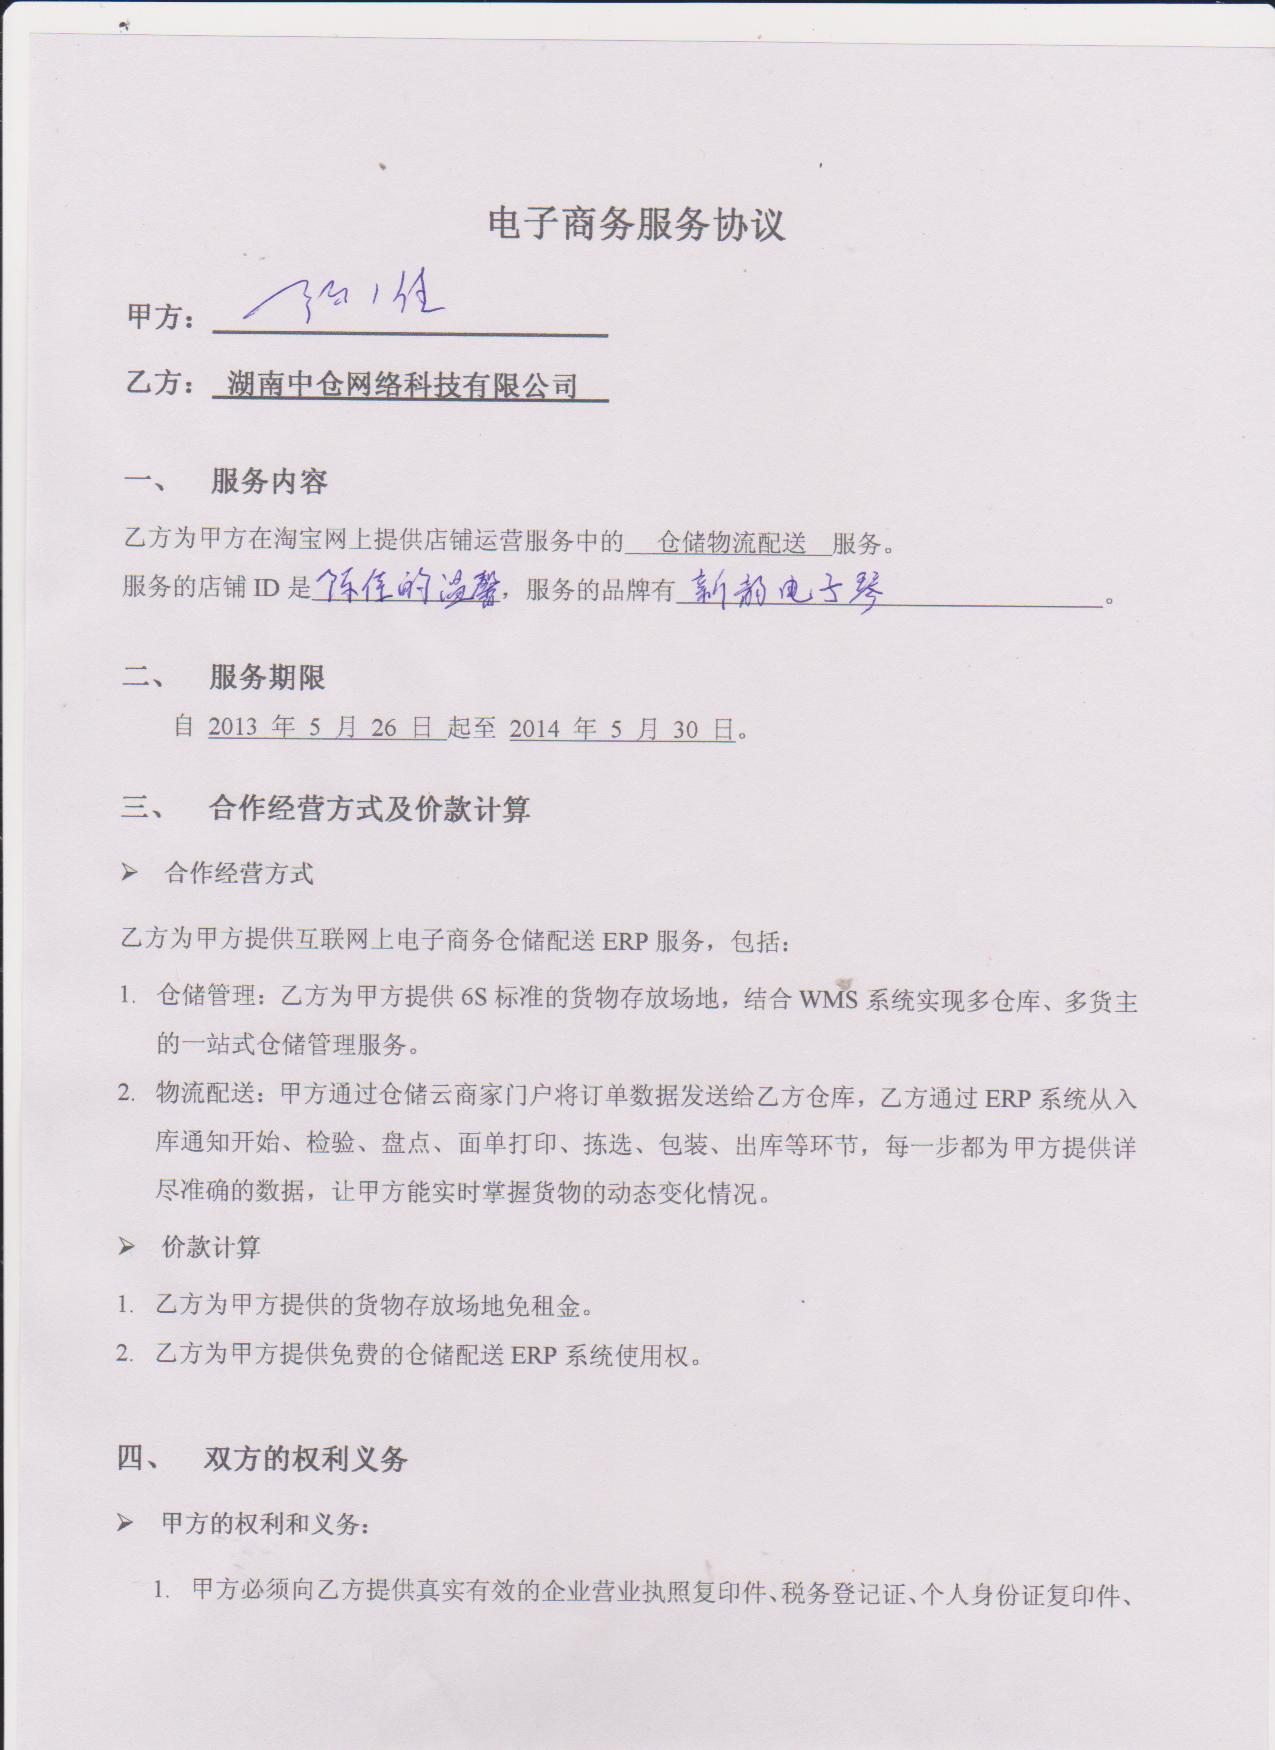 电子商务服务协议
甲方：
乙方： 湖南中仓网络科技有限公司
一、 服务内容
乙方为甲方在淘宝网上提供店铺运营服务中的 仓储物流配送 服务。
服务的店铺 ID 是陈佳的温馨，服务的品牌有 新韵电子琴 。
二、 服务期限
自 2013 年 5 月 26 日 起至 2014 年 5 月 30 日。
三、 合作经营方式及价款计算
➢ 合作经营方式
乙方为甲方提供互联网上电子商务仓储配送 ERP 服务，包括：
1. 仓储管理：乙方为甲方提供 6S 标准的货物存放场地，结合 WMS 系统实现多仓库、多货主
的一站式仓储管理服务。
2. 物流配送：甲方通过仓储云商家门户将订单数据发送给乙方仓库，乙方通过 ERP 系统从入
库通知开始、检验、盘点、面单打印、拣选、包装、出库等环节，每一步都为甲方提供详
尽准确的数据，让甲方能实时掌握货物的动态变化情况。
➢ 价款计算
1. 乙方为甲方提供的货物存放场地免租金。
2. 乙方为甲方提供免费的仓储配送 ERP 系统使用权。
四、 双方的权利义务
➢ 甲方的权利和义务：
1. 甲方必须向乙方提供真实有效的企业营业执照复印件、税务登记证、个人身份证复印件、